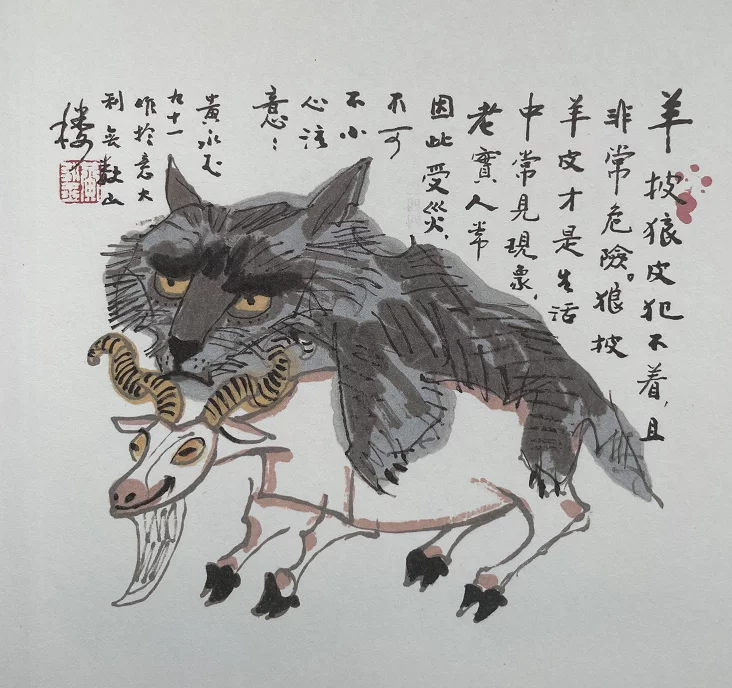 羊披狼皮犯不着，且
非常危險。狼披
羊皮才是生活
中常見現象，
老實人常
因此受災，
不可
不小
心注
意：
黄永玉
九十一
作於意大
利無數山
樓